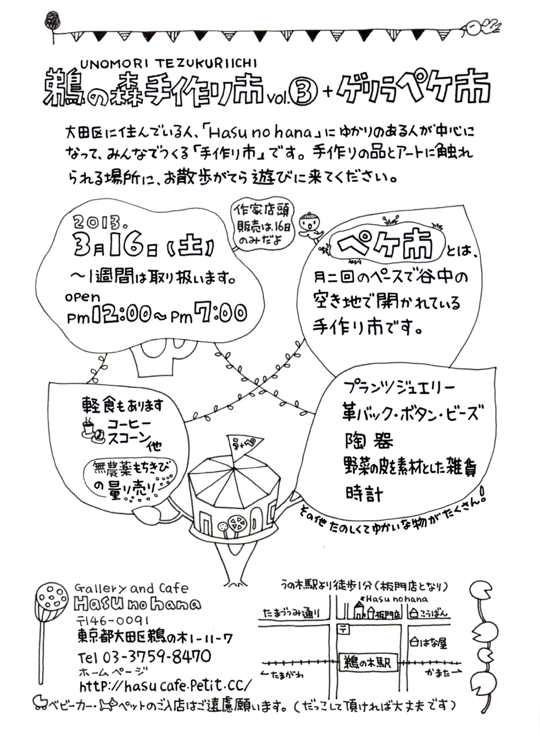 UNOMORI TEZUKURIICHI
鵜の森手作り市vol.③+ゲリラペケ市
大田区に住んでいる人、「Hasu no hana」にゆかりのある人が中心に
なって、みんなでつくる「手作り市」です。手作りの品とアートに触れ
られる場所に、お散歩がてら遊びに来てください。
2013.
3月16日(土)
～1週間は取り扱います。
open
pm12:00～pm7:00
作家店頭
販売は、16日
のみだよ
ペケ市とは、
月二回のペースで谷中の
空き地で開かれている
手作り市です。
軽食もあります
コーヒー
スコーン
他
無農薬もちきび
の量り売り
プランツジュエリー
革バック・ボタン・ビーズ
陶器
野菜の皮を素材とした雑貨
時計
その他たのしくてゆかいな物がたくさん!
Gallery and Cafe
HASU no hana
〒146-0091
東京都大田区鵜の木1-11-7
Tel 03-3759-8470
ホームページ
http://hasucafe.petit.cc/
うの木駅より徒歩1分(板門店となり)
Hasu no hana
たまづつみ通り
板門店
こうばん
はな屋
鵜の木駅
←たまがわ
かまた→
ベビーカー・ペットのご入店はご遠慮願います。(だっこして頂ければ大丈夫です)